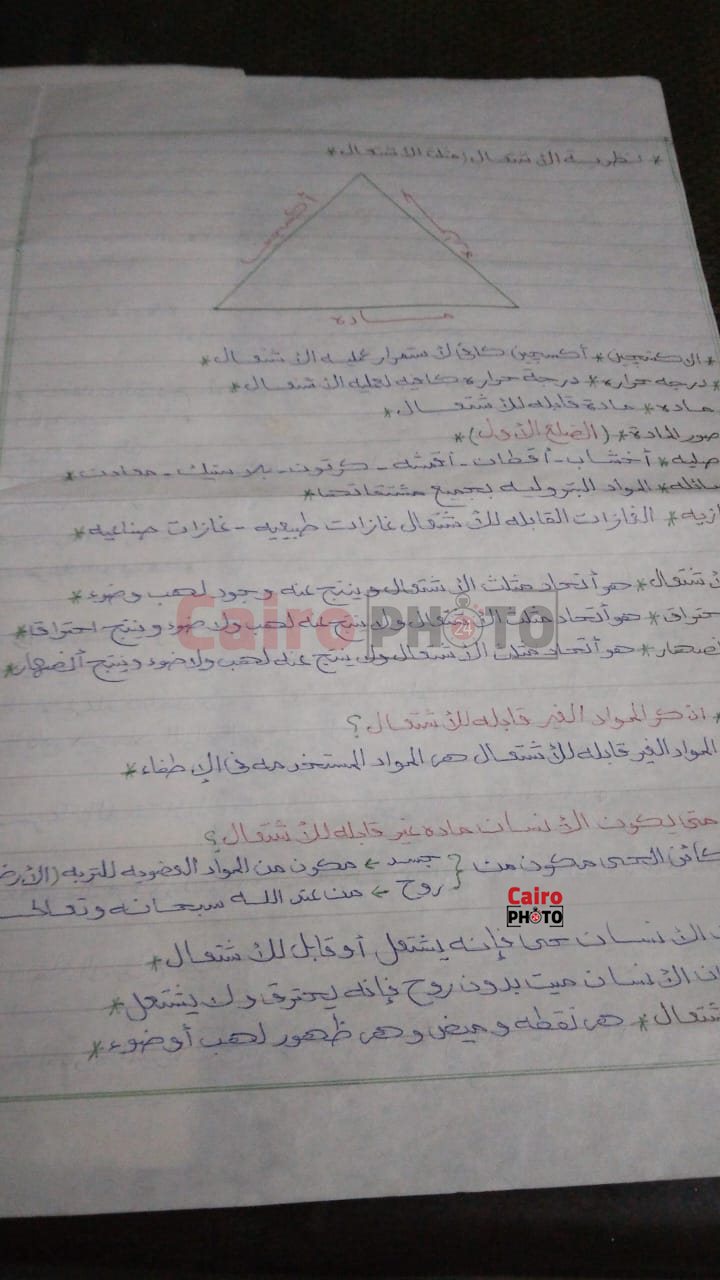 * نظرية الاشتعال (مثلث الاشتعال *
أكسجين
حرارة
مادة
* الاكسجين * أكسجين كافى لاستمرار عمليه الاشتعال *
* درجه حراره * درجة حراره كافيه لعمليه الاشتعال *
ماده * مادة قابله للاشتعال *
صور المادة * (الضلع الأول) *
صلبه * أخشاب - أقطان - أقمشه - كرتون - بلاستيك - معادن *
سائله * المواد البتروليه بجميع مشتقاتها *
ازيه * الغازات القابله للاشتعال غازات طبيعيه - غازات صناعيه *
لاشتعال * هو أتحاد مثلث الاشتعال وينتج عنه وجود لهب وضوء *
حتراق * هو أتحاد مثلث الاشتعال ولا ينتج عنه لهب ولا ضوء وينتج احتراق *
نصهار * هو أتحاد مثلث الاشتعال ولا ينتج عنه لهب ولا ضوء وينتج أنصهار *
Cairo PHOTO 24
* اذكر المواد الغير قابله للاشتعال ؟
المواد الغير قابله للاشتعال هى المواد المستخدمه فى الإطفاء *
متى يكون الانسان ماده غير قابله للاشتعال ؟
كائن الحى مكون من { جسد ← مكون من المواد العضويه للتربه (الأرض
روح ← من عند الله سبحانه وتعالى
Cairo
PHOTO
الانسان حى فإنه يشتعل أو قابل للاشتعال *
ان الانسان ميت بدون روح فإنه يحترق ولا يشتعل *
شتعال * هى نقطه وميض وهى ظهور لهب أو ضوء *